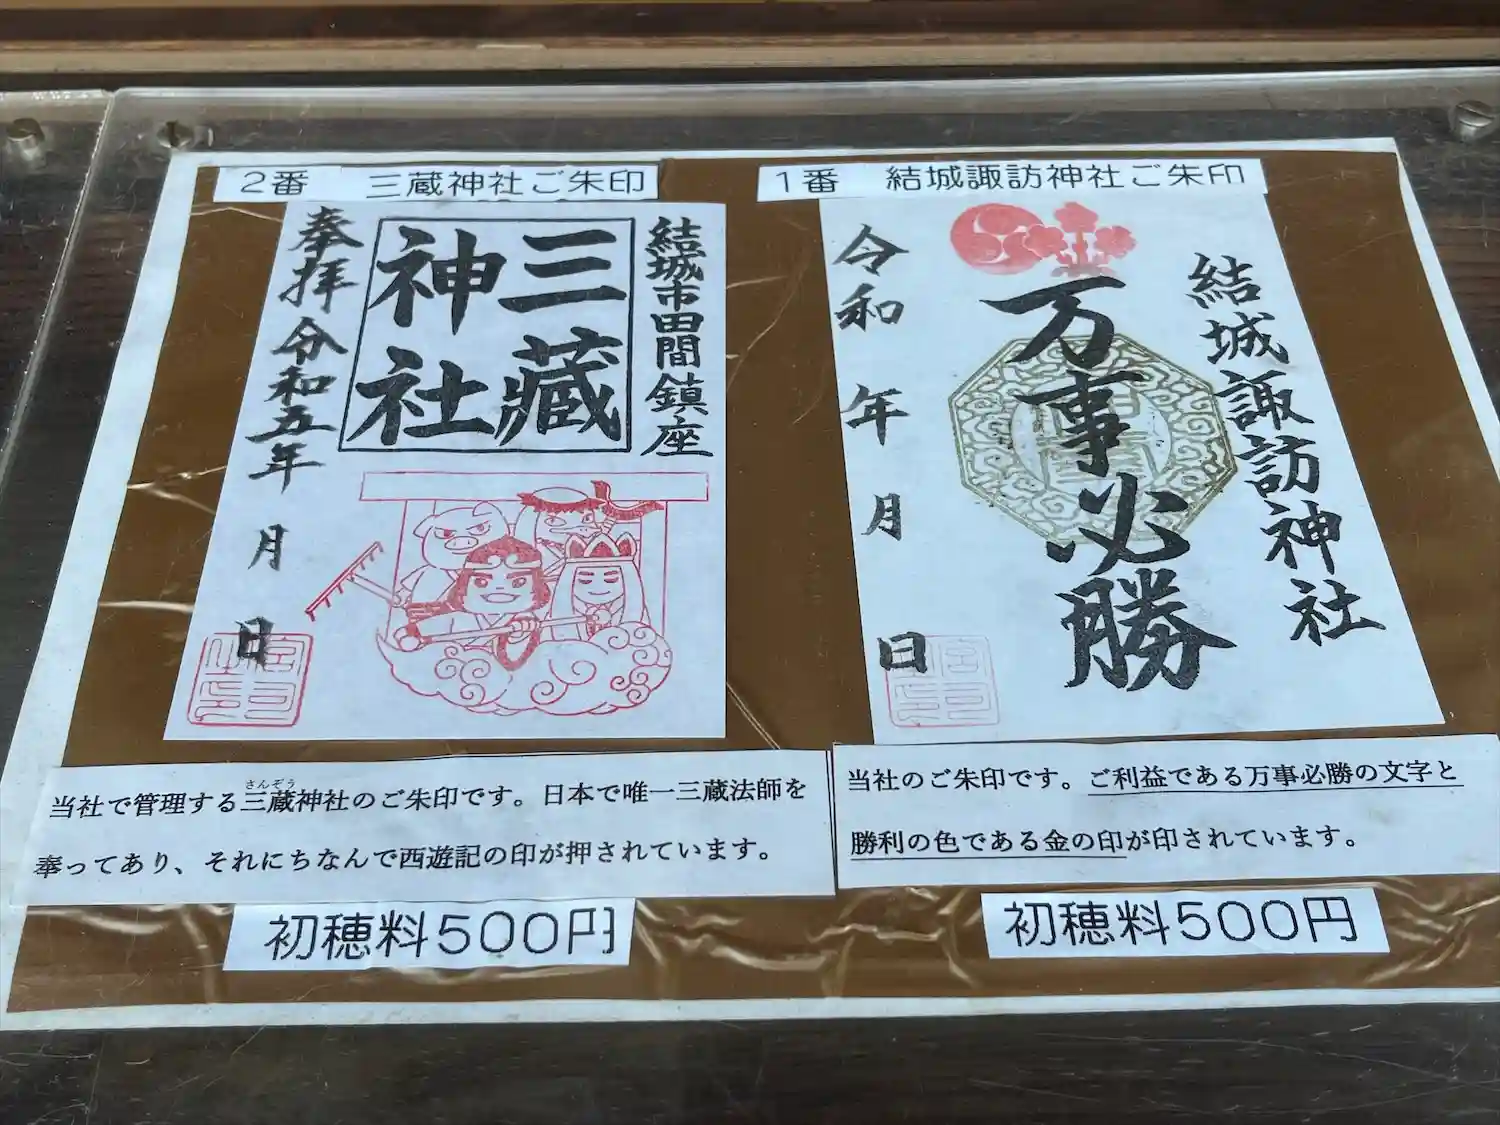 2番　三蔵神社ご朱印
結城市田間鎮座
三蔵
神社
奉拝 令和五年 月 日
当社で管理する三蔵神社のご朱印です。日本で唯一三蔵法師を
さんぞう
奉ってあり、それにちなんで西遊記の印が押されています。
初穂料500円
1番　結城諏訪神社ご朱印
結城諏訪神社
万事必勝
令和 年 月 日
当社のご朱印です。ご利益である万事必勝の文字と
勝利の色である金の印が印されています。
初穂料500円